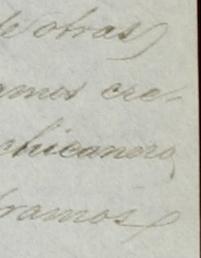 de otras
amos cre-
chicanero
tramos